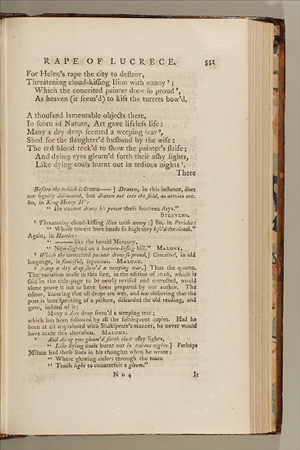 RAPE OF LUCRECE. 551
For Helen's rape the city to destroy,
Threatening cloud-kissing Ilion with annoy ⁷;
Which the conceited painter drew so proud ⁸,
As heaven (it seem'd) to kiss the turrets bow'd.
A thousand lamentable objects there,
In scorn of Nature, Art gave lifeless life:
Many a dry drop seemed a weeping tear ⁹,
Shed for the slaughter'd husband by the wife:
The red blood reek'd to show the painter's strife;
And dying eyes gleam'd forth their ashy lights,
Like dying coals burnt out in tedious nights ¹.
There
Before the which is drawn——] Drawn, in this instance, does
not signify delineated, but drawn out into the field, as armies are.
So, in King Henry IV:
" He cannot draw his power these fourteen days."
STEEVENS.
⁷ Threatening cloud-kissing Ilion with annoy;] So, in Pericles:
" Whose towers bore heads so high they kiss'd the clouds."
Again, in Hamlet:
" ——— like the herald Mercury,
" New-lighted on a heaven-kissing hill." MALONE.
⁸ Which the conceited painter drew so proud,] Conceited, in old
language, is fanciful, ingenious. MALONE.
⁹ Many a dry drop seem'd a weeping tear,] Thus the quarto.
The variation made in this line, in the edition of 1616, which is
said in the title-page to be newly revised and corrected, would
alone prove it not to have been prepared by our author. The
editor, knowing that all drops are wet, and not observing that the
poet is here speaking of a picture, discarded the old reading, and
gave, instead of it:
Many a dire drop seem'd a weeping tear;
which has been followed by all the subsequent copies. Had he
been at all acquainted with Shakspeare's manner, he never would
have made this alteration. MALONE.
¹ And dying eyes gleam'd forth their ashy lights,
" Like dying coals burnt out in tedious nights.] Perhaps
Milton had these lines in his thoughts when he wrote:
" Where glowing embers through the room
" Teach light to counterfeit a gloom."
N n 4 It